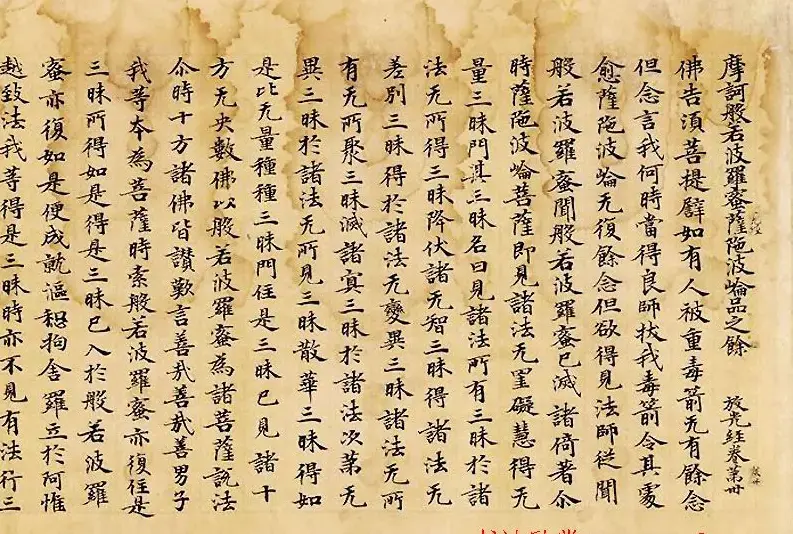 摩訶般若波羅蜜薩陁波崘品之餘 放光经卷第卅
佛告湏菩提譬如有人被重毒箭无有餘念
但念言我何時當得良師拔我毒箭令其處
愈薩陁波崘无復餘念但欲得見法師從聞
般若波羅蜜聞般若波羅蜜已滅諸倚著尒
時薩陁波崘菩薩即見諸法无罣礙慧得无
量三昧門其三昧名曰見諸法所有三昧於諸
法无所得三昧降伏諸无智三昧得諸法无
差別三昧得於諸法无變異三昧諸法无所
有无所聚三昧滅諸冥三昧於諸法次第无
異三昧於諸法无所見三昧散華三昧得如
是比无量種種三昧門住是三昧已見諸十
方无央數佛以般若波羅蜜為諸菩薩說法
尒時十方諸佛皆讚歎言善哉善哉善男子
我等本為菩薩時索般若波羅蜜亦復住是
三昧所得如是得是三昧已入於般若波羅
蜜亦復如是便成就漚惒拘舍羅立於阿惟
越致法我等得是三昧時亦不見有法行三